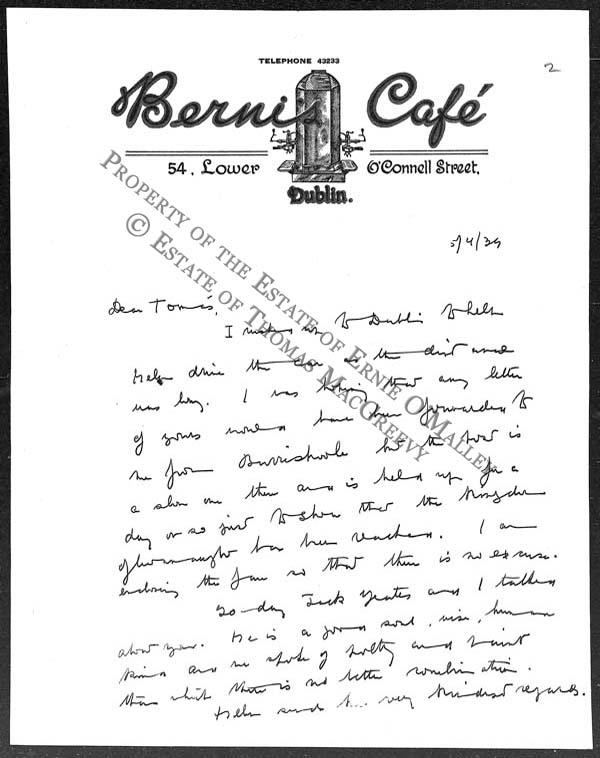 TELEPHONE 43233
2
Bernis Café
54. Lower O'Connell Street,
Dublin.
PROPERTY OF THE ESTATE OF ERNIE O'MALLEY
© ESTATE OF THOMAS MACGREEVY
5/4/39
Dear Tomás,
I to Dublin to help
Helen drive the car as the
was long. I was hoping that any letter
of yours would have been forwarded to
me from Burrishoole but the post is
a slow one there and is held up for a
day or so just to show that the Kingdom
of has been reached. I am
enclosing the so that there is no excuse.
To-day Jack Yeats and I talked
about you. He is a good soul, wise, human
and and we spoke of and paint
than which there is no better combination.
Helen sends her very kindest regards.